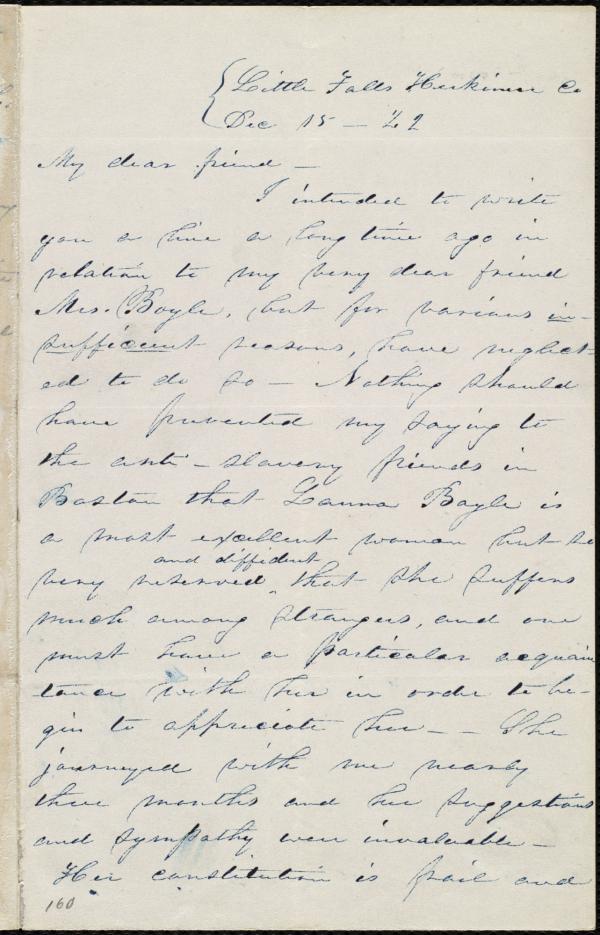 Little Falls Herkimer Co
Dec 15 - 42
My dear friend -
I intended to write
you a line a long time ago in
relation to my very dear friend
Mrs. Boyle, but for various in-
sufficient reasons, have neglect-
ed to do so - Nothing should
have prevented my saying to
the anti-slavery friends in
Boston that Laura Boyle is
a most excellent woman but so
and diffident
very reserved ‸ that she suffers
much among strangers, and one
must have a particular acquain
tance with her in order to be-
gin to appreciate her - - She
journeyed with me nearly
three months and her suggestions
and sympathy were invaluable -
Her constitution is frail and
160